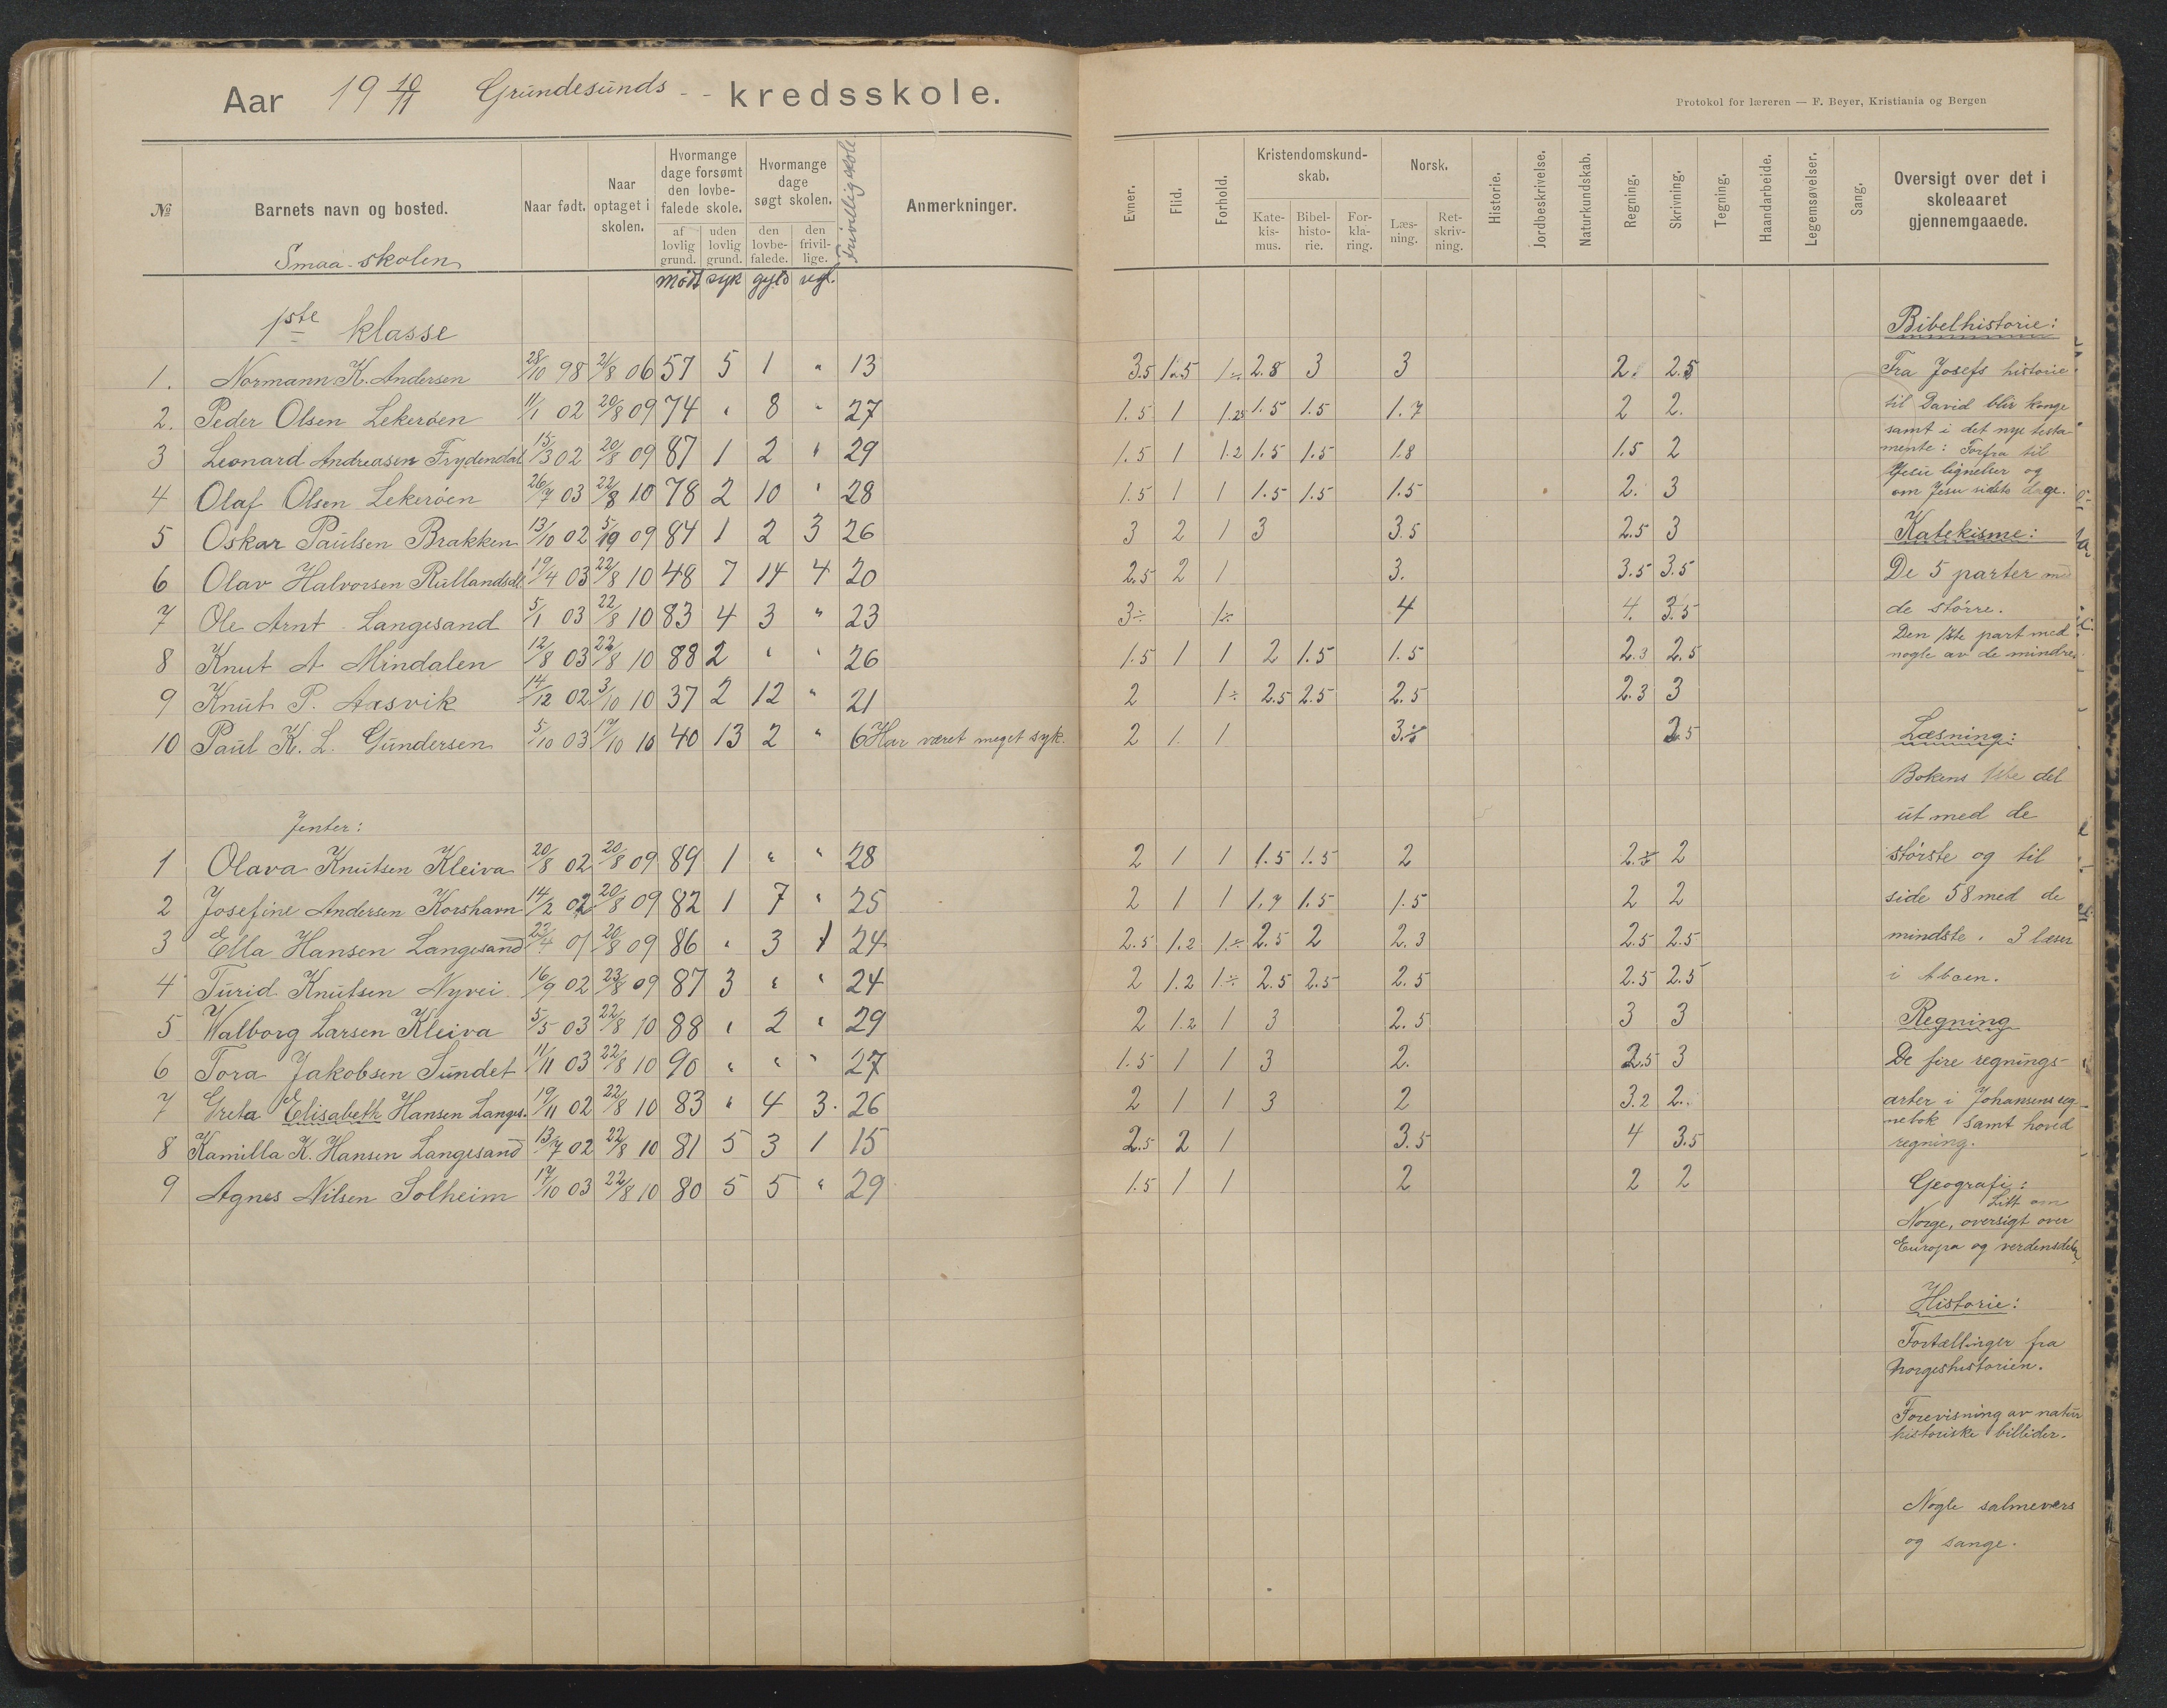 Aar 19 10/11 Grundesunds - - kredsskole.
№
Barnets navn og bosted.
Naar født.
Naar optaget i skolen.
Hvormange dage forsømt den lovbefalede skole.
af lovlig grund.
uden lovlig grund.
Hvormange dage søgt skolen.
den lovbefalede.
den frivillige.
Frivillig skole
Anmerkninger.
Smaa-skolen
mødt syk gyld ugl.
1ste klasse
1. Normann K. Andersen 28/10 98 21/8 06 57 5 1 " 13
2. Peder Olsen Lekerøen 11/1 02 20/8 09 74 " 8 " 27
3 Leonard Andreasen Frydendal 15/3 02 20/8 09 87 1 2 " 29
4 Olaf Olsen Lekerøen 26/7 03 22/8 10 78 2 10 " 28
5 Oskar Paulsen Brakken 13/10 02 5/10 09 84 1 2 3 26
6 Olav Halvorsen Rullandsdl. 19/4 03 22/8 10 48 7 14 4 20
7 Ole Arnt Langesand 5/1 03 22/8 10 83 4 3 " 23
8 Knut A Mindalen 12/8 03 22/8 10 88 2 " " 26
9 Knut P. Aasvik 14/12 02 3/10 10 37 2 12 " 21
10 Paul K. L. Gundersen 5/10 03 17/10 10 40 13 2 " 6 Har været meget syk.
Jenter:
1 Olava Knutsen Kleiva 20/8 02 20/8 09 89 1 " " 28
2 Josefine Andersen Korshavn 14/2 02 20/8 09 82 1 7 " 25
3 Ella Hansen Langesand 22/4 01 20/8 09 86 " 3 1 24
4 Turid Knutsen Nyvei 16/9 02 23/8 09 87 3 " " 24
5 Walborg Larsen Kleiva 5/5 03 22/8 10 88 " 2 " 29
6 Tora Jakobsen Sundet 11/11 03 22/8 10 90 " " " 27
7 Greta Elisabeth Hansen Langes. 19/11 02 22/8 10 83 " 4 3. 26
8 Kamilla K. Hansen Langesand 13/7 02 22/8 10 81 5 3 1 15
9 Agnes Nilsen Solheim 17/10 03 22/8 10 80 5 5 " 29
Protokol for læreren — F. Beyer, Kristiania og Bergen
Evner.
Flid.
Forhold.
Kristendomskundskab.
Katekismus.
Bibelhistorie.
Forklaring.
Norsk.
Læsning.
Retskrivning.
Historie.
Jordbeskrivelse.
Naturkundskab.
Regning.
Skrivning.
Tegning.
Haandarbeide.
Legemsøvelser.
Sang.
Oversigt over det i
skoleaaret
gjennemgaaede.
3.5 1.5 1÷ 2.8 3 3 2. 2.5
1.5 1 1.25 1.5 1.5 1.7 2 2.
1.5 1 1.2 1.5 1.5 1.8 1.5 2
1.5 1 1 1.5 1.5 1.5 2. 3
3 2 1 3 3.5 2.5 3
2.5 2 1 3. 3.5 3.5
3÷ 1÷ 4 4. 3.5
1.5 1 1 2 1.5 1.5 2.3 2.5
2 1÷ 2.5 2.5 2.5 2.3 3
2 1. 1 3.÷ 2.5
2 1 1 1.5 1.5 2 2.÷ 2
2 1 1 1.7 1.5 1.5 2 2
2.5 1.2 1.÷ 2.5 2 2.3 2.5 2.5
2 1.2 1.÷ 2.5 2.5 2.5 2.5 2.5
2 1.2 1 3 2.5 3 3
1.5 1 1 3 2. 2.5 3
2 1 1 3 2 3.2 2.
2.5 2 1 3.5 4 3.5
1.5 1 1 2 2 2
Bibelhistorie:
Fra Josefs historie
til David blir konge
samt i det nye testa-
mente: Forfra til
Jesu lignelser og
om Jesu sidste dage.
Katekisme:
De 5 parter med
de større.
Den 1ste part med
nogle av de mindre.
Læsning:
Bokens 1ste del
ut med de
største og til
side 58 med de
mindste. 3 læser
i Abcen.
Regning
De fire regnings-
arter i Johansens reg-
nebok samt hoved
regning.
Geografi:
Litt om
Norge, oversigt over
Europa og verdensdele
Historie:
Fortællinger fra
Norgeshistorien.
Forevisning av natur
historiske billider.
Nogle salmevers
og sange.